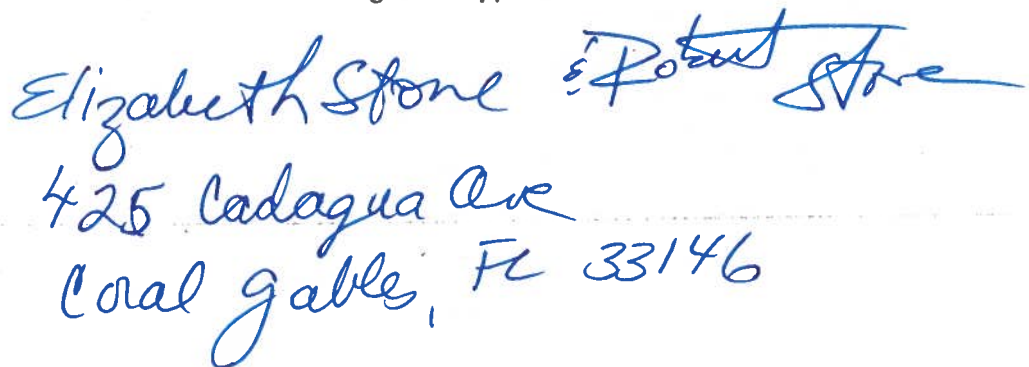 Elizabeth Stone & Robert Stone
425 Cadagua Ave
Coral Gables, FL 33146